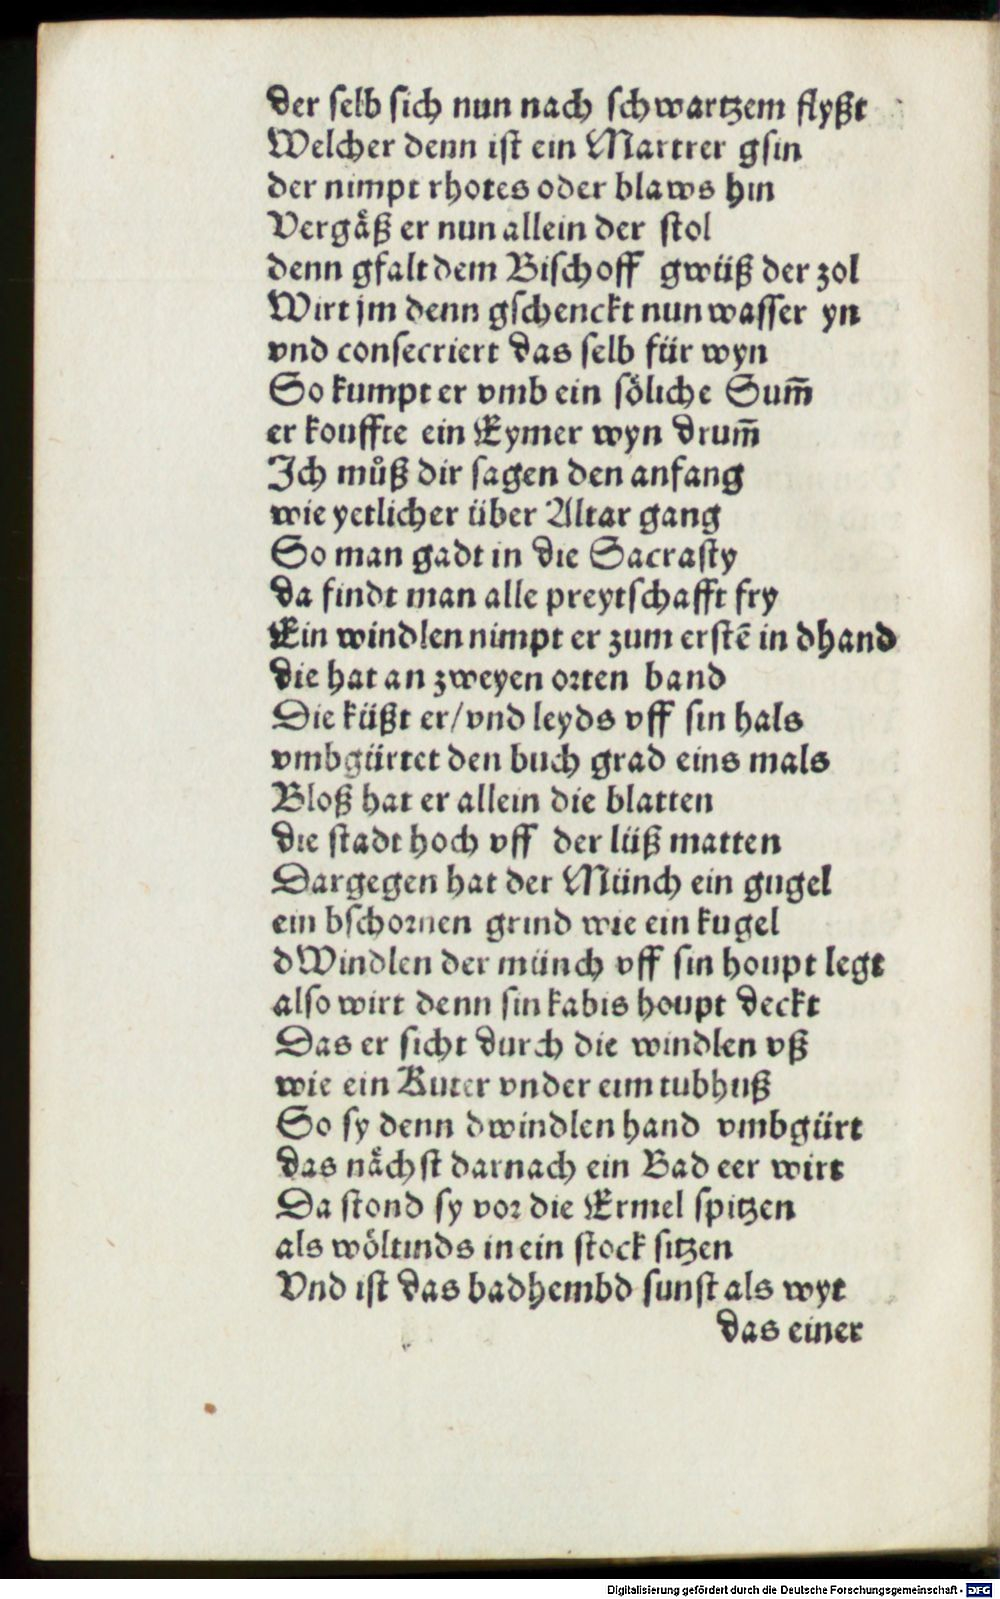 der selb sich nun nach schwartzem flyßt
Welcher denn ist ein Martrer gsin
der nimpt rhotes oder blaws hin
Vergåß er nun allein der stol
denn gfalt dem Bischoff gwüß der zol
Wirt jm denn gschenckt nun wasser yn
vnd consecriert das selb für wyn
So kumpt er vmb ein söliche Sum̄
er kouffte ein Eymer wyn drum̄
Ich můß dir sagen den anfang
wie yetlicher über Altar gang
So man gadt in die Sacrasty
da findt man alle preytschafft fry
Ein windlen nimpt er zum erstē in dhand
die hat an zweyen orten band
Die küßt er/vnd leyds vff sin hals
vmbgürtet den buch grad eins mals
Bloß hat er allein die blatten
die stadt hoch vff der lüß matten
Dargegen hat der Münch ein gugel
ein bschornen grind wie ein kugel
dWindlen der münch vff sin houpt legt
also wirt denn sin kabis houpt deckt
Das er sicht durch die windlen vß
wie ein Kuter vnder eim tubhuß
So sy denn dwindlen hand vmbgürt
das nåchst darnach ein Bad eer wirt
Da stond sy vor die Ermel spitzen
als wöltinds in ein stock sitzen
Vnd ist das badhembd sunst als wyt
das einer
Digitalisierung gefördert durch die Deutsche Forschungsgemeinschaft - DFG